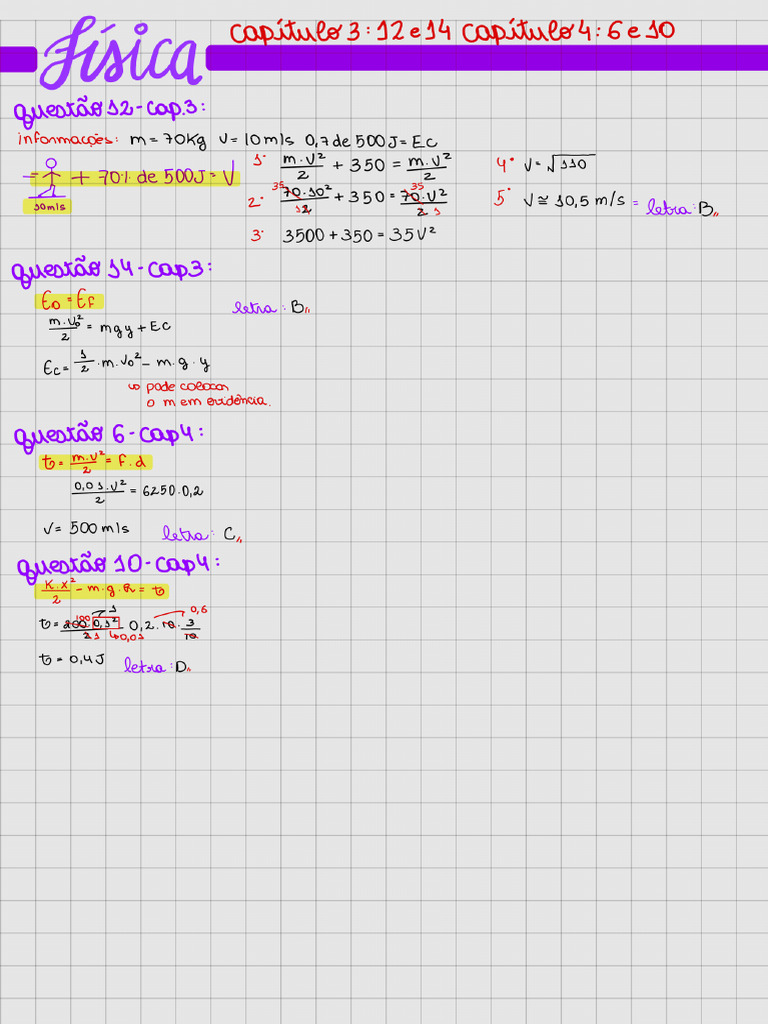 Física
capítulo 3: 12 e 14 capítulo 4: 6 e 10
questão 12 - cap.3:
informações: m = 70Kg V = 10 m/s 0,7 de 500 J = Ec
+ 70% de 500J = V
10 m/s
1° m.v²/2 + 350 = m.v²/2
2° 70.10²/2 + 350 = 70.v²/2
35 35
1 1
3° 3500 + 350 = 35V²
4° V = √110
5° V ≅ 10,5 m/s = letra: B,,
questão 14 - cap 3:
E₀ = Ef
letra: B,,
m.v₀²/2 = mgy + Ec
Ec = 1/2 . m.v₀² - m.g.y
↪ pode colocar
o m em evidência.
questão 6 - cap 4:
τ = m.v²/2 = F.d
0,01.v²/2 = 6250.0,2
V = 500 m/s letra: C,,
questão 10 - cap 4:
K.x²/2 - m.g.R = τ
τ = 200 0,1²/2 0,2.10.3/10
100 1 0,6
1 ↪0,01
τ = 0,4 J letra: D,,